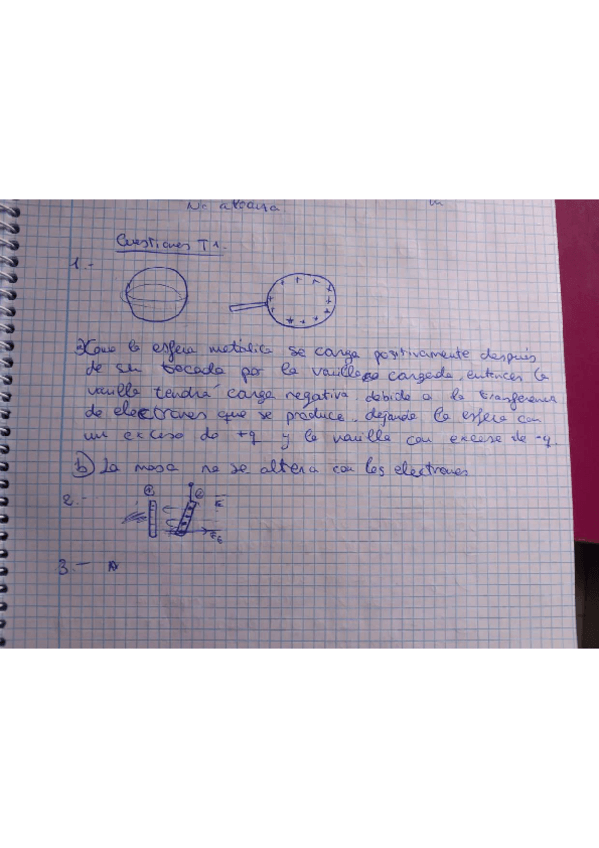 Cuestiones T1.
1.-
a) Como la esfera metálica se carga positivamente despues
de ser tocada por la varilla cargada, entonces la
varilla tendrá carga negativa debido a la transferencia
de electrones que se produce dejando la esfera con
un exceso de +q y la varilla con exceso de -q
b) La masa no se altera con los electrones
2.-
3.- A